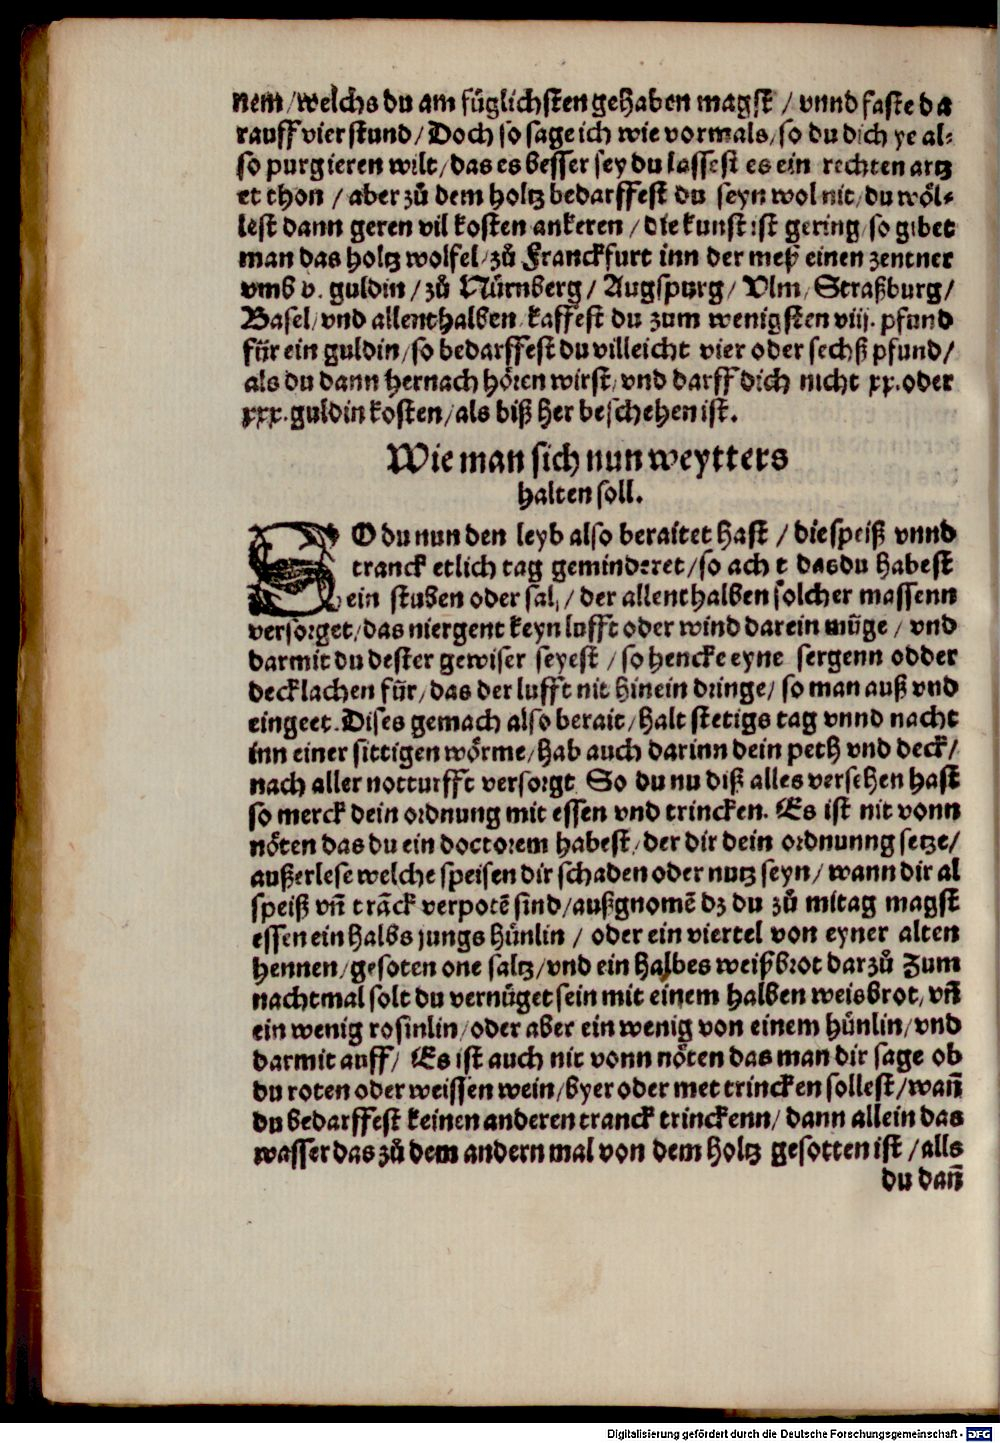 nem/welchs du am fůglichsten gehaben magst / vnnd faste da
rauff vier stund/Doch so sage ich wie vormals/so du dich ye al⸗
so purgieren wilt/das es besser sey du lassest es ein rechten artz
et thon / aber zů dem holtz bedarffest du seyn wol nit/du wöl⸗
lest dann geren vil kosten ankeren / die kunst ist gering/so gibet
man das holtz wolfel/zů Franckfurt inn der meß einen zentner
vmb v. guldin / zů Nürnberg / Augspurg / Vlm/Straßburg/
Basel/vnd allenthalben/kaffest du zum wenigsten viij. pfund
für ein guldin/so bedarffest du villeicht vier oder sechß pfund/
als du dann hernach hören wirst/vnd darff dich nicht xx.oder
xxx.guldin kosten/als biß her beschehen ist.
Wie man sich nun weytters
halten soll.
SO du nun den leyb also beraitet hast / die speiß vnnd
tranck etlich tag geminderet/so ach t das du habest
ein stuben oder sal/ der allenthalben sölcher massenn
versorget/das niergent keyn lufft oder wind darein müge / vnd
darmit du dester gewiser seyest / so hencke eyne sergenn odder
decklachen für/das der lufft nit hinein dringe/ so man auß vnd
eingeet.Dises gemach also berait/halt stetigs tag vnnd nacht
inn einer sittigen wörme/hab auch darinn dein peth vnd deck/
nach aller notturfft versorgt So du nu diß alles versehen hast
so merck dein ordnung mit essen vnd trincken. Es ist nit vonn
nöten das du ein doctorem habest/der dir dein ordnunng setze/
außerlese welche speisen dir schaden oder nutz seyn/wann dir al
speiß vn̄ trāck verpotē sind/außgnomē dz du zů mitag magst
essen ein halbs jungs hünlin / oder ein viertel von eyner alten
hennen/gesoten one saltz/vnd ein halbes weißbrot darzů Zum
nachtmal solt du vernüget sein mit einem halben weisbrot/vn̄
ein wenig rosinlin/oder aber ein wenig von einem hünlin/vnd
darmit auff/ Es ist auch nit vonn nöten das man dir sage ob
du roten oder weissen wein/byer oder met trincken sollest/wan̄
du bedarffest keinen anderen tranck trinckenn/dann allein das
wasser das zů dem andern mal von dem holtz gesotten ist /alls
du dan̄
Digitalisierung gefördert durch die Deutsche Forschungsgemeinschaft - DFG